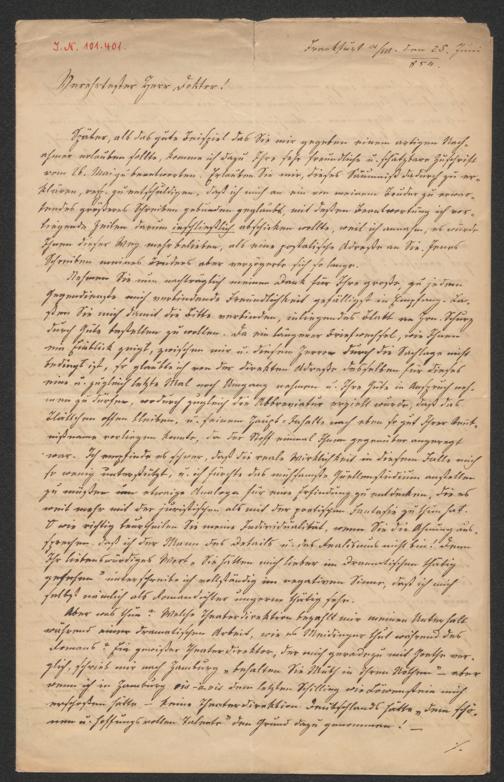 J. N. 101.401.
Frankfurt a/M. den 25. Juni
854.
Verehrtester Herr Doktor!
Später, als das gute Beispiel das Sie mir gegeben einem artigen Nach-
ahmer erlauben sollte, komme ich dazu Ihre sehr freundliche u. schätzbare Zuschrift
vom 26. Mai zu beantworten. Erlauben Sie mir, dieses Säumniß dadurch zu er-
klären, resp. zu entschuldigen, daß ich mich an ein von meinem Bruder zu erwar-
tendes größeres Schreiben gebunden geglaubt, mit dessen Beantwortung ich vor-
liegende Zeilen darum einschließlich abschicken wollte, weil ich annahm, es würde
Ihnen dieser Weg mehr belieben, als eine postalische Adresse an Sie. Jenes
Schreiben meines Bruders aber verzögerte sich so lange.
Nehmen Sie nun nachträglich meinen Dank für Ihre große, zu jedem
Gegendienste mich verbindende Freundlichkeit gefälligst in Empfang. La-
ßen Sie mich damit die Bitte verbinden, inliegendes Blatt an Hrn. Schurz
durch Güte bestellen zu wollen. Da ein längerer Briefwechsel, wie Ihnen
ein Einblick zeigt, zwischen mir u. diesem Herrn durch die Sachlage nicht
bedingt ist, so glaubte ich von der direkten Adresse desselben für dieses
eine u. zugleich letzte Mal noch Umgang nehmen u. Ihre Güte in Anspruch neh-
men zu dürfen, wodurch zugleich die Abbreviatur erzielt würde, daß das
Blättchen offen bleiben, u. seinem Haupt-Inhalte nach eben so gut Ihrer Kennt-
nißnahme vorliegen konnte, da der Stoff einmal Ihnen gegenüber angeregt
war. Ich empfinde es schwer, daß die reale Wirklichkeit in diesem Falle mich
so wenig unterstützt, u. ich fürchte das mühsamste Quellenstudium anstellen
zu müßen um etwaige Analoga für eine Erfindung zu entdecken, die es
weit mehr mit der juristischen als mit der poetischen Fantasie zu thun hat.
O wie richtig beurtheilen Sie meine Individualität, wenn Sie die Ahnung aus-
sprechen, daß ich der Mann des Details u. des Realismus nicht bin! Denn
Ihr liebenswürdiges Wort „Sie hätten mich lieber im Dramatischen thätig
gesehen“ unterschreibe ich vollständig im negativen Sinne, daß ich mich
selbst nämlich als Romandichter ungern thätig sehe.
Aber was thun? Welche Theaterdirektion bezahlt mir meinen Unterhalt
während einer dramatischen Arbeit, wie es Meidinger thut während des
Romans? Ein gewisser Theaterdirektor, der mich geradezu mit Goethe ver-
glich, schrieb mir nach Hamburg „behalten Sie Muth in Ihren Nöthen“ – aber
wenn ich in Hamburg vis-à-vis dem letzten Schilling wie Löwenstein mich
erschossen hätte – keine Theaterdirektion Deutschlands hätte „dem schö-
nen u. hoffnungsvollen Talente“ den Grund dazu genommen! –
./.